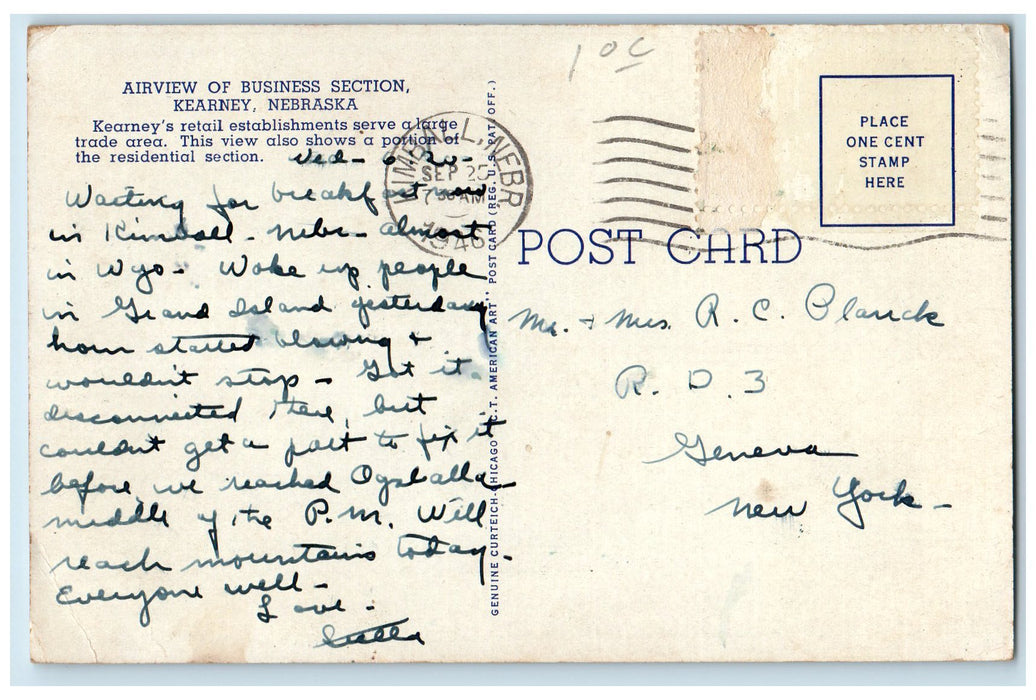 AIRVIEW OF BUSINESS SECTION,
KEARNEY, NEBRASKA
Kearney's retail establishments serve a large
trade area. This view also shows a portion of
the residential section.
Wed - 6:30 -
Waiting for breakfast now
in Kimball - Nebr - almost
in Wyo - Woke up people
in Grand Island yesterday
horn started blowing +
wouldn't stop - Got it
disconnected there, but
couldn't get a part to fix it
before we reached Ogallalla
middle of the P.M. Will
reach mountains today -
Everyone well -
Love -
GENUINE CURTEICH-CHICAGO "C.T. AMERICAN ART" POST CARD (REG. U.S. PAT. OFF.)
KIMBALL, NEBR
SEP 25
7 30 AM
1946
10c
PLACE
ONE CENT
STAMP
HERE
POST CARD
Mr. + Mrs. R. C. Planck
R. D. 3
Geneva
New York -